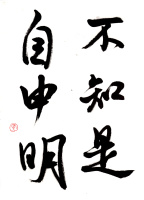 不知是
自申明